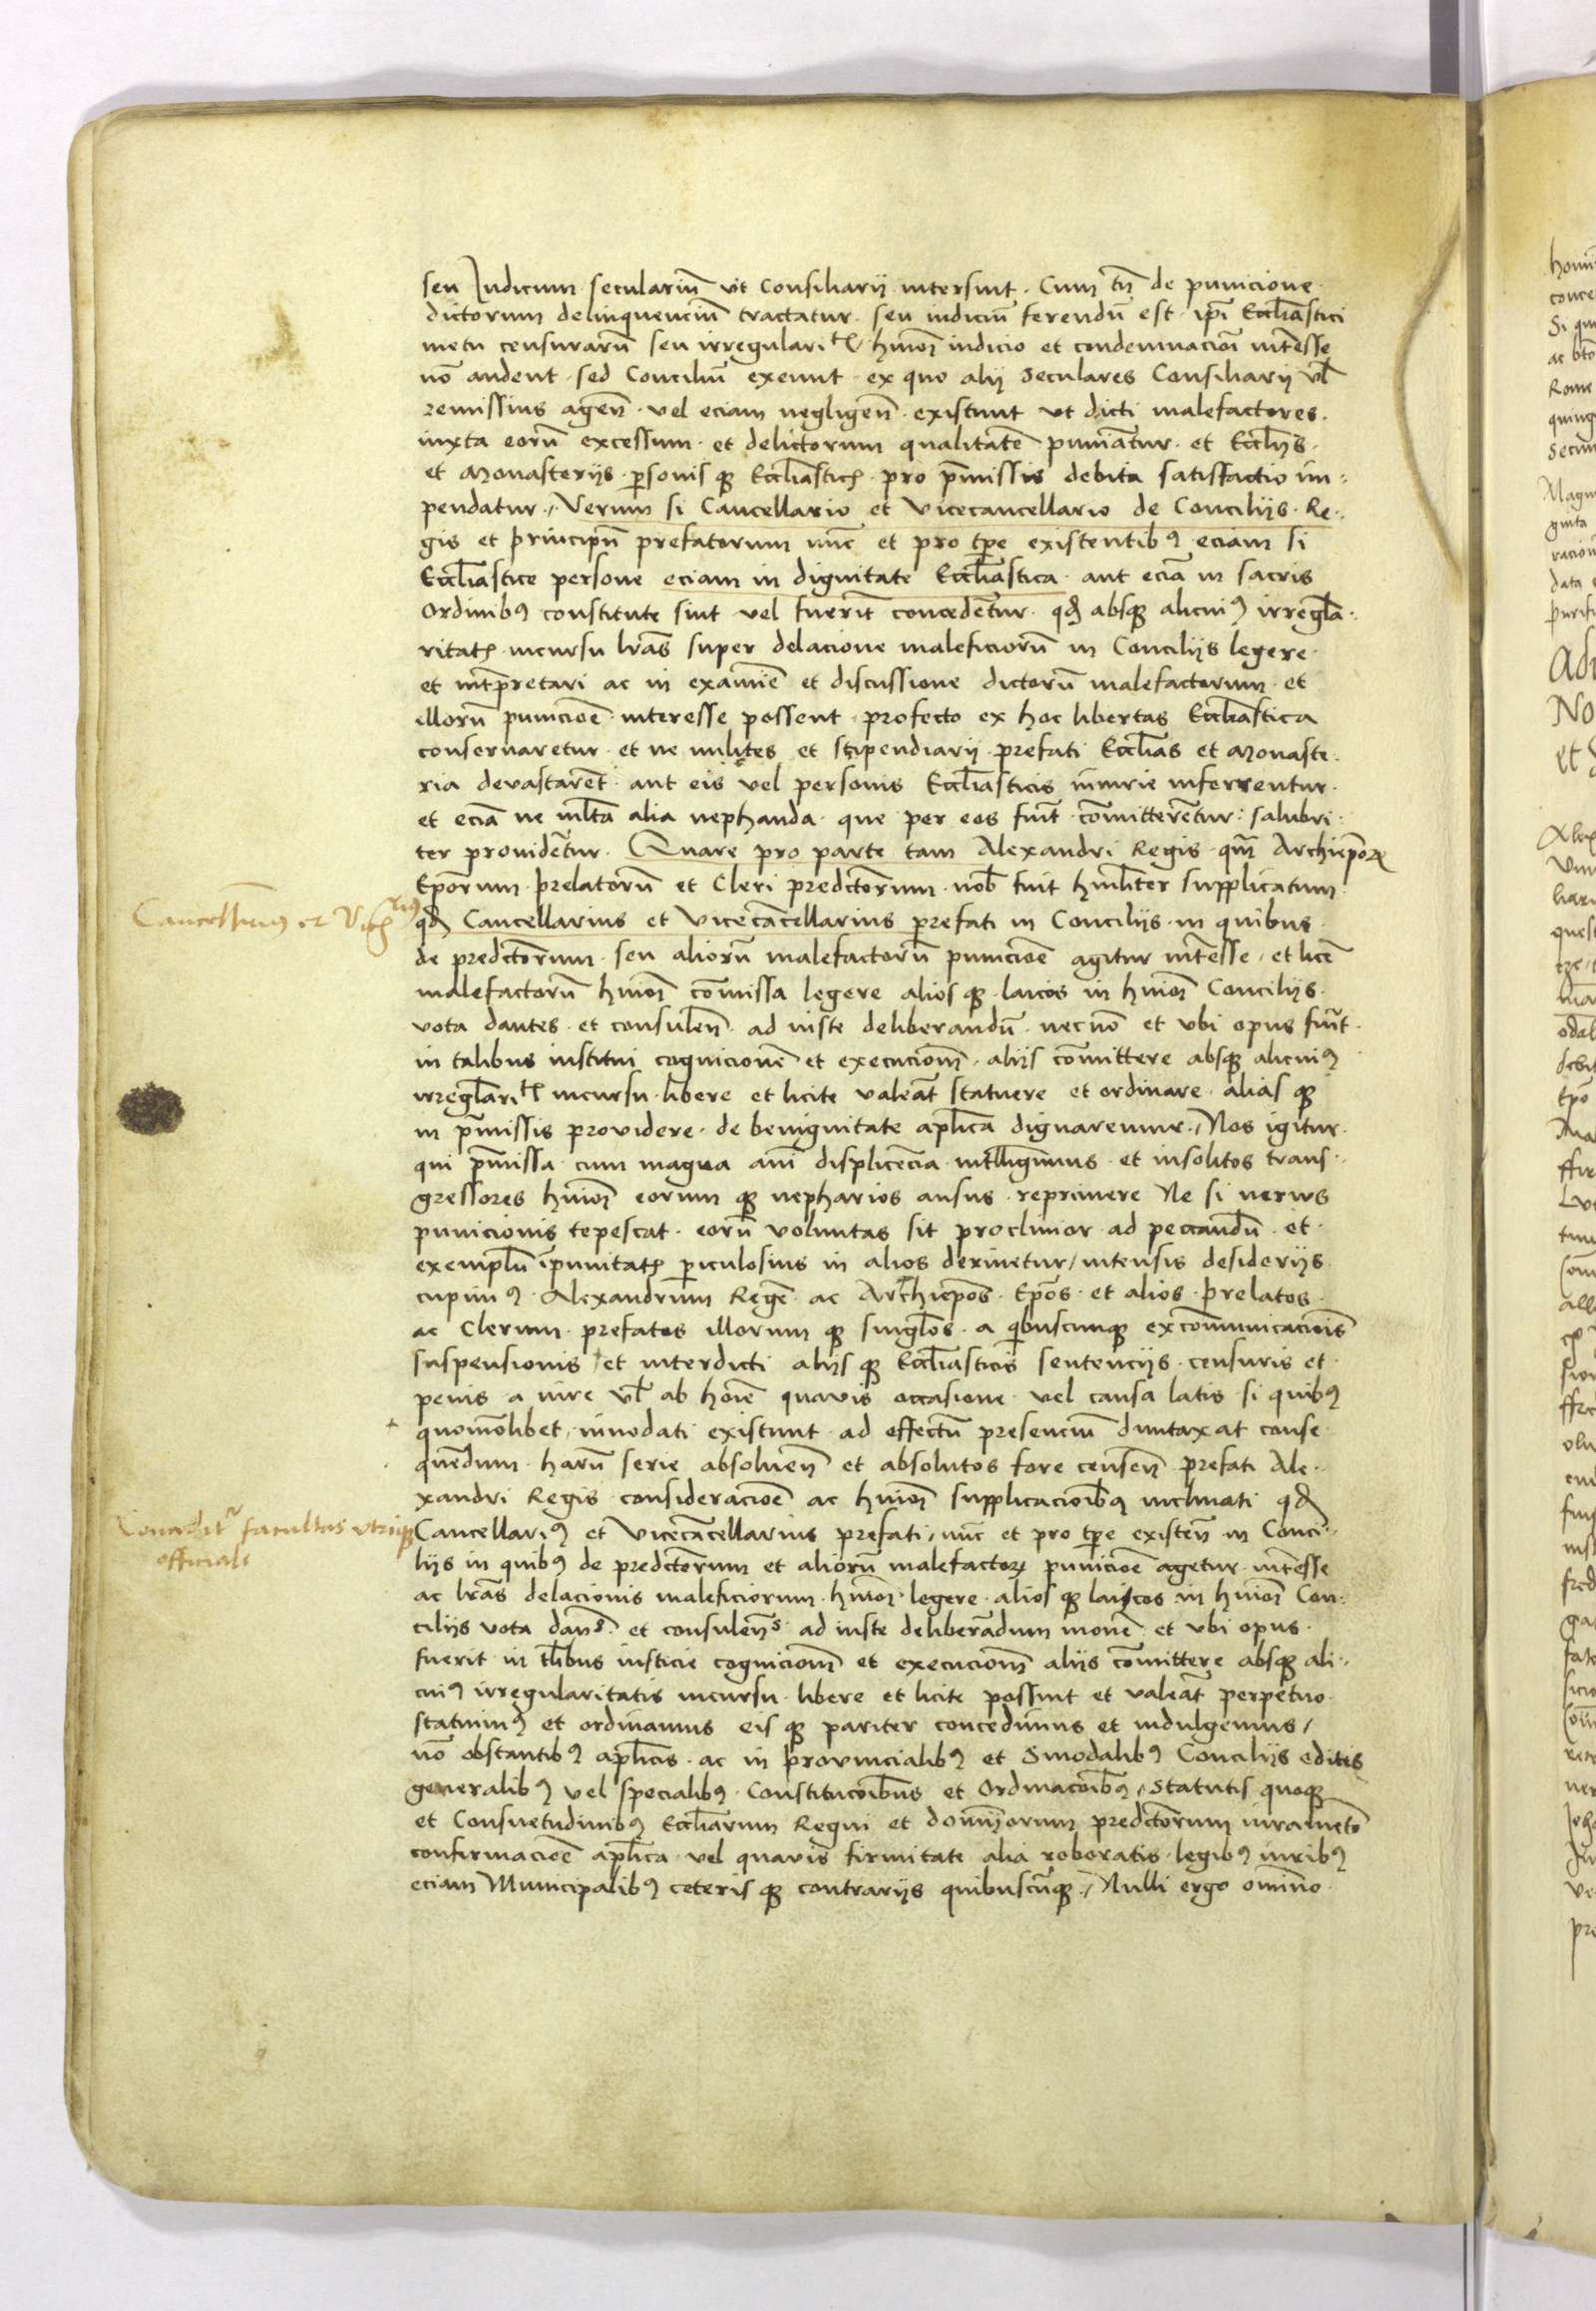 seu Iudicum seculariū vt Consiliarij intersint. Cum tn̄ de punicione
dictorum delinquenciū tractatur. seu iudiciū ferendū est. ip̄i Eccl̄iastici
metu censurarū seu irregularit͛ hmōi iudicio et condemnacōi int̄esse
nō audent. sed Conciliū exeunt. ex quo alij seculares Consiliarij vl̄
remissius agen̄. vel eciam negligen̄. existunt vt dicti malefactores.
iuxta eorū excessum. et delictorum qualitatē puniātur. et Eccl̄ijs.
et Monasterijs. ꝑsonis qꝫ Eccl̄iasticꝭ. pro p̄missis debita satisfactio im
pendatur. Verum si Cancellario et Vicecancellario de Concilijs. Re
gis et principū prefatorum nūc et pro tꝑe existentibꝰ eciam si
Eccl̄iastice persone eciam in dignitate Eccl̄iastica. aut eciā in sacris
Ordinibꝰ constitute sint vel fuerīt concedētur. qđ absqꝫ alicuiꝰ irregl̄a
ritatꝭ incursu l̄ras super delacione maleficiorū in Concilijs legere
et int̄p̄retari ac in examīe et discussione dictorū malefactorum. et
illorū puniciōe interesse possent. profecto ex hoc libertas Eccl̄iastica
conseruaretur. et ne milites et stipendiarij prefati Eccl̄ias et Monaste
ria devastarēt. aut eis vel personis Eccl̄iasticis iniurie inferrentur.
et eciā ne ml̄ta alia nephanda. que per eos fiūt. cōmitterētur: salubri
ter prouidētur. Quare pro parte tam Alexandri Regis. qm̄ Archiep̄oꝝ
Ep̄orum. prelatorū et Cleri predictorum. nob̄ fuit hmīl̄iter supplicatum
Cancellariꝰ et Vicecꝭriꝰ
qđ Cancellarius et Vicecācellarius prefati in Concilijs. in quibus
de predictorum. seu aliorū malefactorū puniciōe agitur int̄esse, et licē
malefactorū hmōi cōmissa legere alios qꝫ laicos in hmōi Concilijs.
vota dantes. et consulen̄. ad iuste deliberandū. necnō et vbi opus fuīt.
in talibus institui cognicionē et execucionē. alijs cōmittere absqꝫ alicuiꝰ
irregl̄arit͛ incursu. libere et licite valeāt statuere et ordinare. alias qꝫ
in p̄missis providere. de benignitate apl̄ica dignaremur. Nos igitur.
qui p̄missa. cum magna aīi displicēcia intelligimus. et insolitos trans
gressores hmōi eorum qꝫ nepharios ausus. reprimere Ne si nerws
punicionis tepescat. eorū voluntas sit proclinior. ad peccandū. et
exemplū īpunitatꝭ ꝑiculosius in alios deriuetur, intensis desiderijs
cupimꝰ. Alexandrum Regē. ac Archiep̄os. Ep̄os. et alios prelatos.
ac Clerum. prefatos illorum qꝫ singl̄os. a qibuscumqꝫ excōmunicaciōis
suspensionis et interdicti alijs qꝫ Eccl̄iasticis sentencijs. censuris et
penis. a iure vl̄ ab hōie quavis occasione. vel causa latis. si quibꝰ
quomōlibet. innodati existunt. ad effectū presenciū duntaxat conse
quēdum. harū serie absoluen̄ et absolutos fore censen̄. prefati Ale
xandri Regis. consideraciōe ac hmōi supplicaciōibꝰ inclinati qđ
Conceditʳ facultas vtriqꝫ
officiali
Cancellariꝰ et Vicecācellarius prefati, nūc et pro tꝑe existen̄ in Conci
lijs in quibꝰ de predictorum et aliorū malefactoꝝ puniciōe agetur. int̄esse
ac l̄ras delacionis maleficiorum. hmōi. legere. alios qꝫ laicos in hmōi Con
cilijs vota dan̄s. et consulen̄s ad iuste deliberādum monē et vbi opus
fuerit in tl̄ibus iusticie cognicionē et execucionē alijs cōmittere absqꝫ ali
cuiꝰ irregularitatis incursu. libere et licite possint et valeāt perpetuo
statuimꝰ et ordinamus eis qꝫ pariter concedimus et indulgemus,
nō obstantibꝰ apl̄icis. ac in prouincialibꝰ et Sinodalibꝰ Concilijs editis
generalibꝰ vel specialibꝰ. Constitucōibus et Ordinacōibꝰ, Statutis quoqꝫ
et Consuetudinibꝰ Eccl̄iarum Regni et dominiorum predictorum iuramēto
confirmaciōe apl̄ica. vel quavis firmitate alia roboratis. legibꝰ iuribꝰ
eciam Municipalibꝰ ceteris qꝫ contrarijs quibuscūqꝫ. Nulli ergo omīno